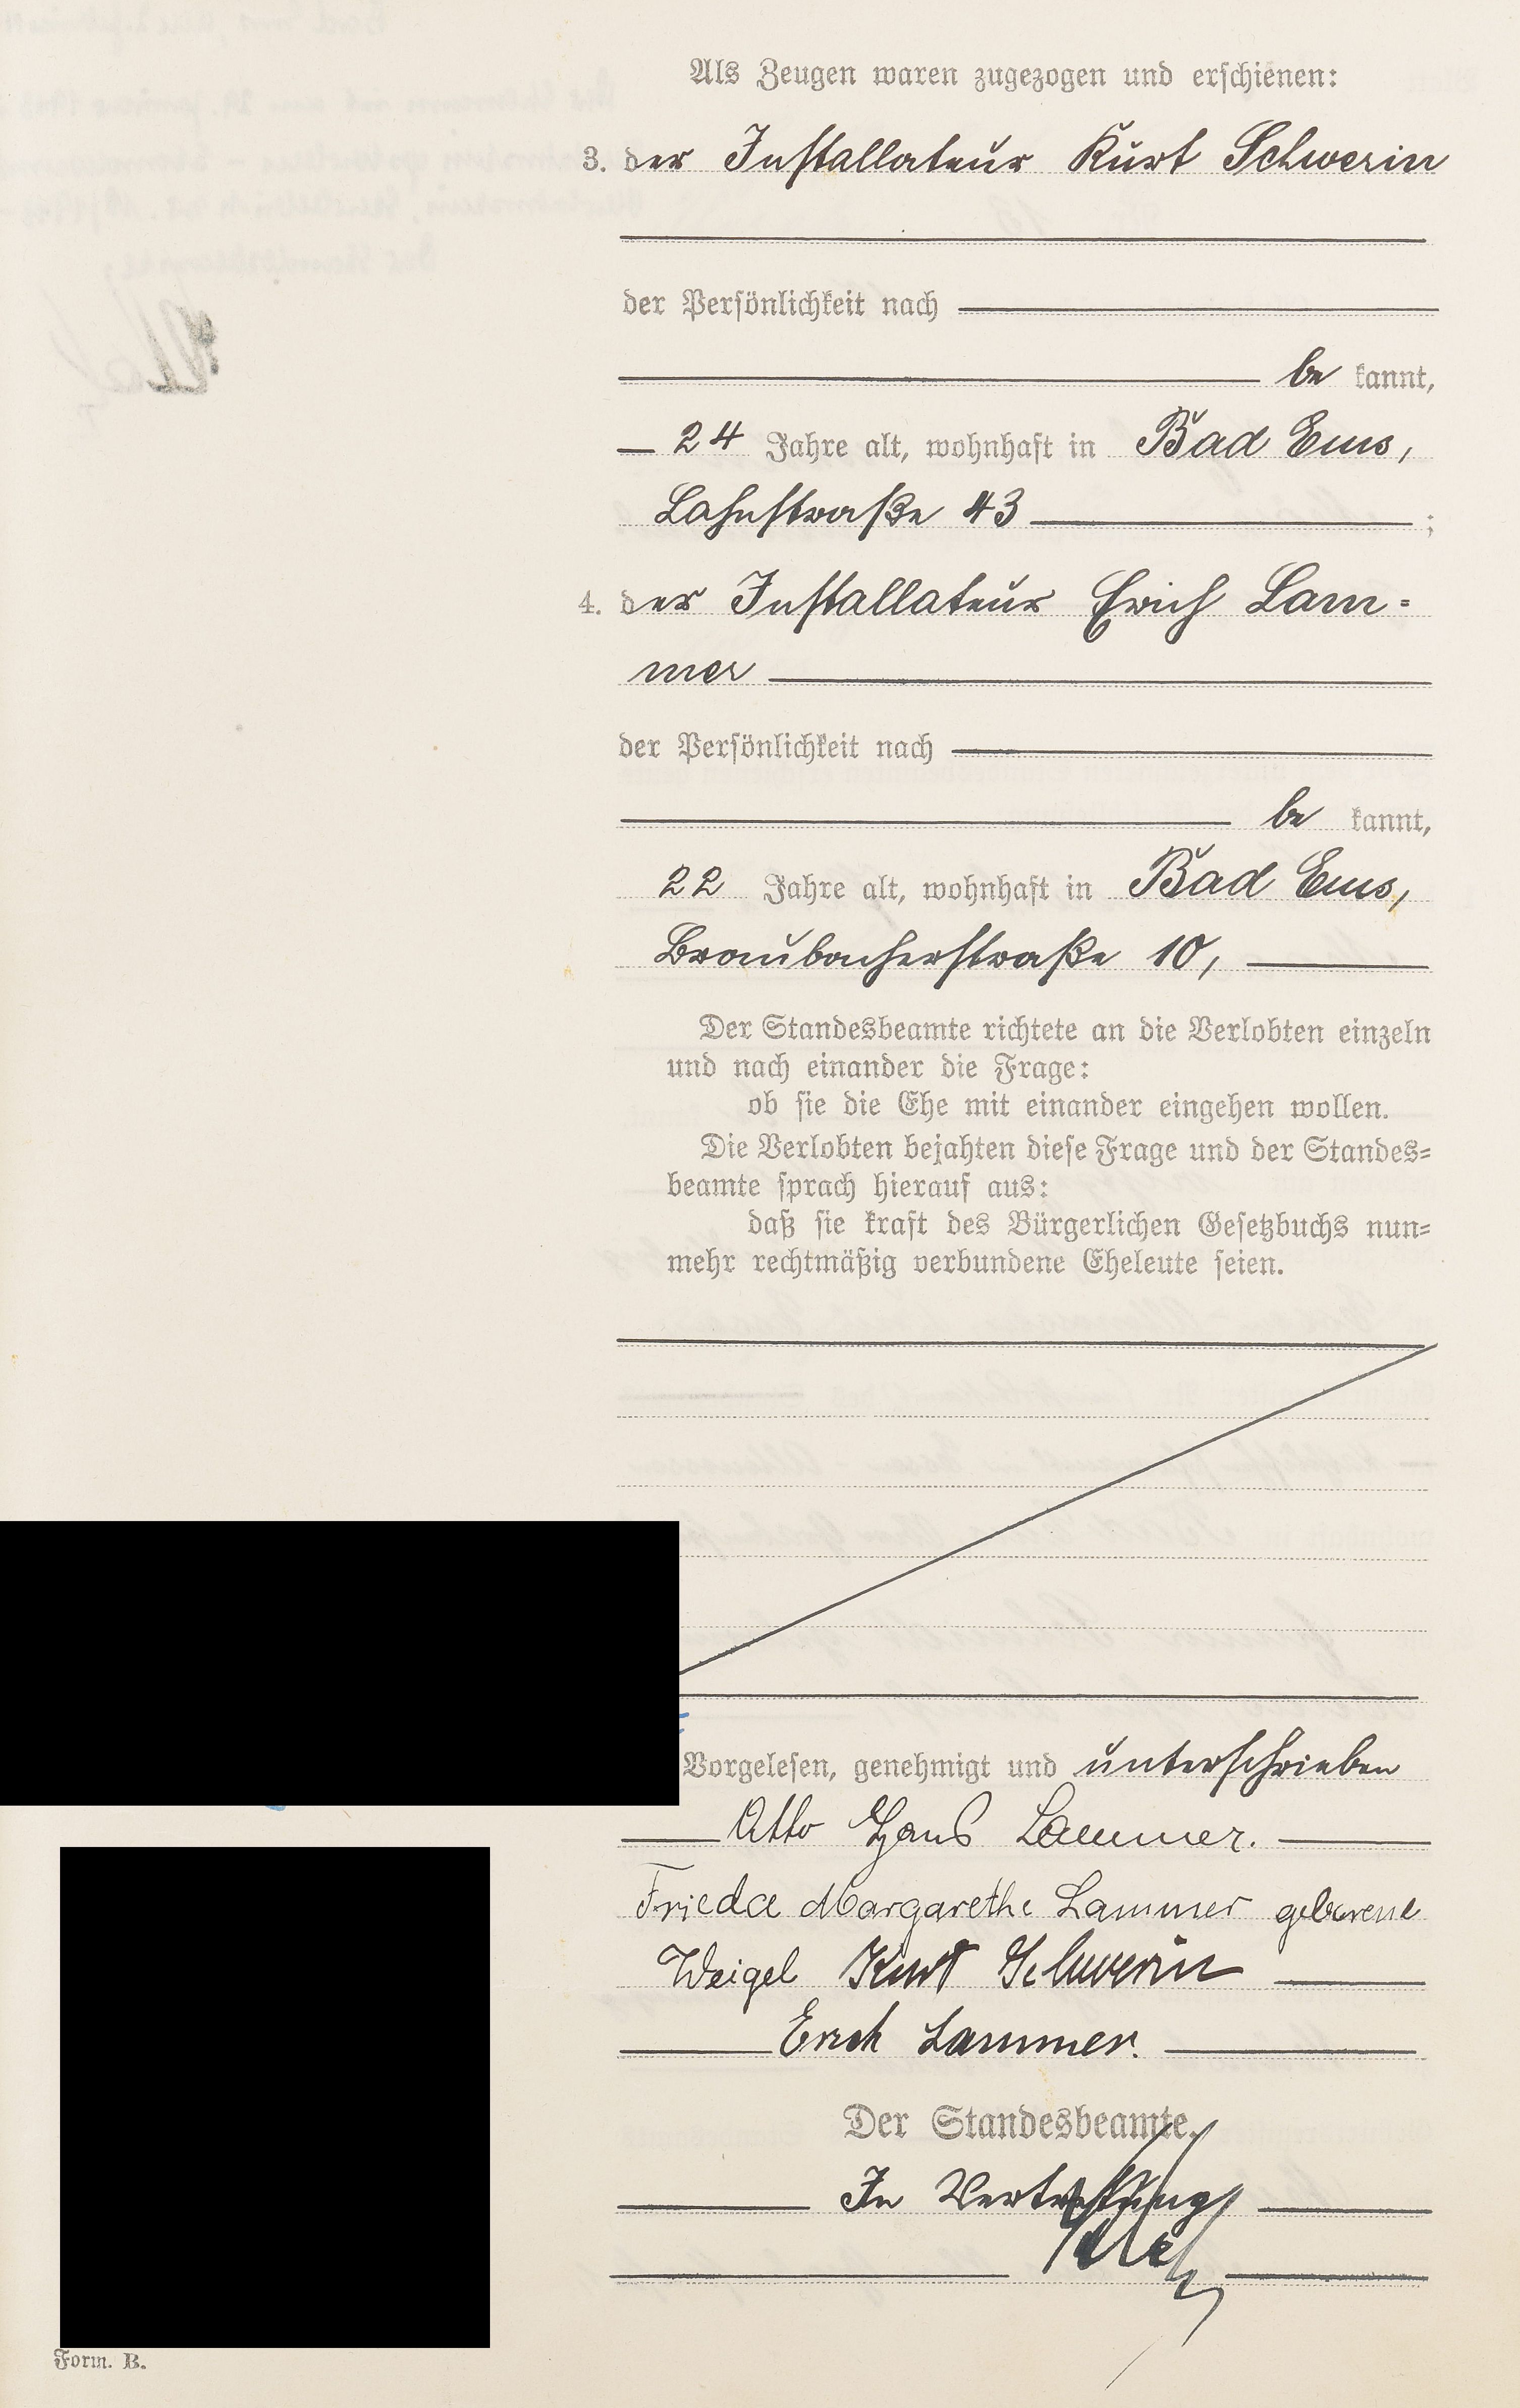 Als Zeugen waren zugezogen und erschienen:
3. der Installateur Kurt Schwerin
der Persönlichkeit nach
be kannt,
24 Jahre alt, wohnhaft in Bad Ems,
Lahnstraße 43 ;
4. der Installateur Erich Lam=
mer
der Persönlichkeit nach
be kannt,
22 Jahre alt, wohnhaft in Bad Ems,
Braubacherstraße 10,
Der Standesbeamte richtete an die Verlobten einzeln
und nach einander die Frage:
ob sie die Ehe mit einander eingehen wollen.
Die Verlobten bejahten diese Frage und der Standes=
beamte sprach hierauf aus:
daß sie kraft des Bürgerlichen Gesetzbuchs nun=
mehr rechtmäßig verbundene Eheleute seien.
Vorgelesen, genehmigt und unterschrieben
Otto Hans Lammer.
Frieda Margarethe Lammer geborene
Weigel Kurt Schwerin
Erich Lammer.
Der Standesbeamte.
In Vertretung
Form. B.